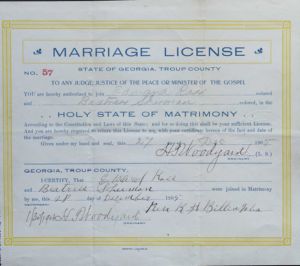 MARRIAGE LICENSE
STATE OF GEORGIA, TROUP COUNTY
NO. 57
TO ANY JUDGE, JUSTICE OF THE PEACE OR MINISTER OF THE GOSPEL
YOU are hereby authorized to join Edward colored
and Beatrice colored, in the
. . HOLY STATE OF MATRIMONY . .
According to the Constitution and Laws of this State; and for so doing this shall be your sufficient License.
And you are hereby required to return this License to me, with your certificate hereon of the fact and date of
the marriage.
Given under my hand and seal, this 27 day of Dec 190
H T Woodyard (L. S.)
GEORGIA, TROUP COUNTY.
I CERTIFY, That Edward
and Beatrice were joined in Matrimony
by me, this 28 day of December 190
H T Woodyard